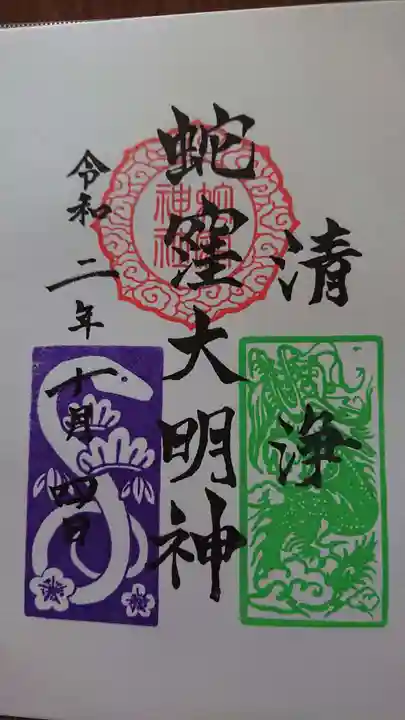 清浄
蛇窪大明神
蛇窪神社
令和二年十月四日